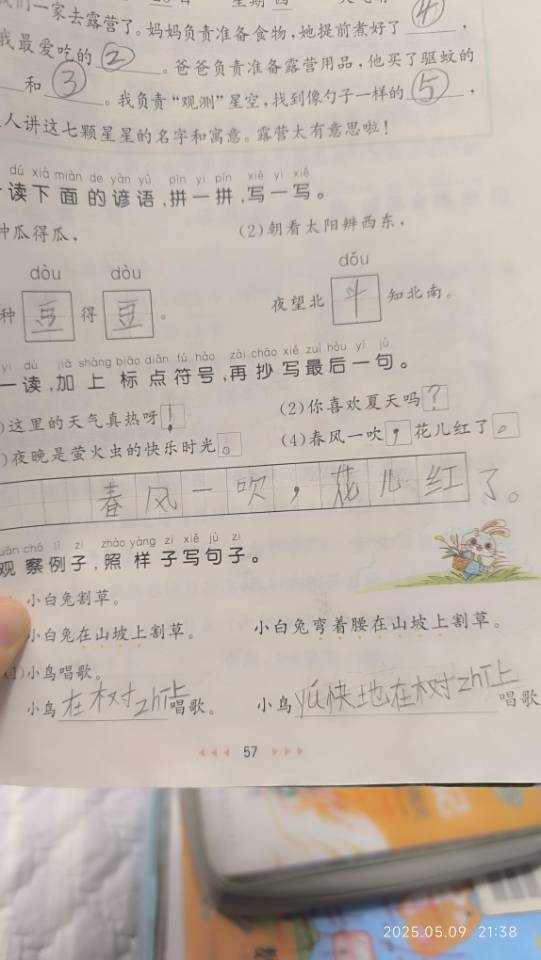 们一家去露营了。妈妈负责准备食物,她提前煮好了 ④ ,
我最爱吃的 ② 。爸爸负责准备露营用品,他买了驱蚊的
和 ③ 。我负责“观测”星空,找到像勺子一样的 ⑤ ,
人讲这七颗星星的名字和寓意。露营太有意思啦!
dú xià miàn de yàn yǔ pīn yi pīn xiě yi xiě
读下面的谚语,拼一拼,写一写。
种瓜得瓜, (2)朝看太阳辨西东,
dòu dòu dǒu
种 豆 得 豆 。 夜望北 斗 知北南。
yi dú jiā shàng biāo diǎn fú hào zài chāo xiě zuì hòu yí jù
一读,加上标点符号,再抄写最后一句。
这里的天气真热呀! (2)你喜欢夏天吗?
夜晚是萤火虫的快乐时光。 (4)春风一吹,花儿红了。
春风一吹,花儿红了。
guān chá lì zi zhào yàng zi xiě jù zi
观察例子,照样子写句子。
小白兔割草。
小白兔在山坡上割草。 小白兔弯着腰在山坡上割草。
(1)小鸟唱歌。
小鸟在树zhī上唱歌。 小鸟yú快地在树zhī上唱歌
57
2025.05.09 21:38